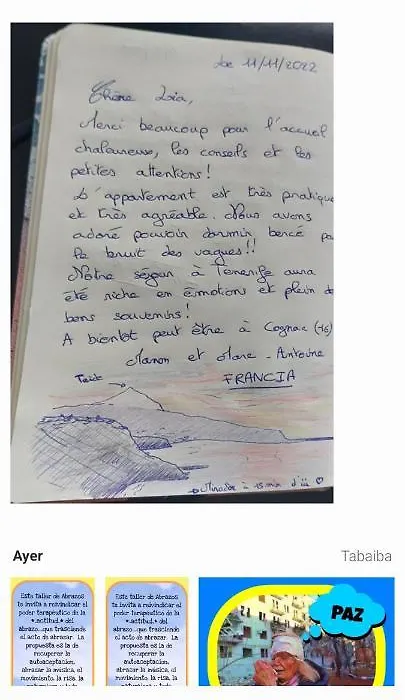 Le 11/11/2022
Chère Loia,
Merci beaucoup pour l'accueil
chaleureux, les conseils et les
petites attentions!
L'appartement est très pratique
et très agréable. Nous avons
adoré pouvoir dormir bercé pa
le bruit des vagues!!
Notre séjour à Tenerife aura
été riche en émotions et plein de
bons souvenirs!
A bientôt peut être à Cognac (16)
Manon et Marc-Antoine
FRANCIA
Teide
Mirador à 15 min d'ici ♡
Ayer
Tabaiba
Este taller de Abrazos
te invita a reivindicar el
poder terapéutico de la
*actitud* del
abrazo...que trasciende
el acto de abrazar. La
propuesta es la de
recuperar la
autoaceptación,
abrazar la música, el
movimiento, la risa, la
Este taller de Abrazos
te invita a reivindicar el
poder terapéutico de la
*actitud* del
abrazo...que trasciende
el acto de abrazar. La
propuesta es la de
recuperar la
autoaceptación,
abrazar la música, el
movimiento, la risa, la
PAZ